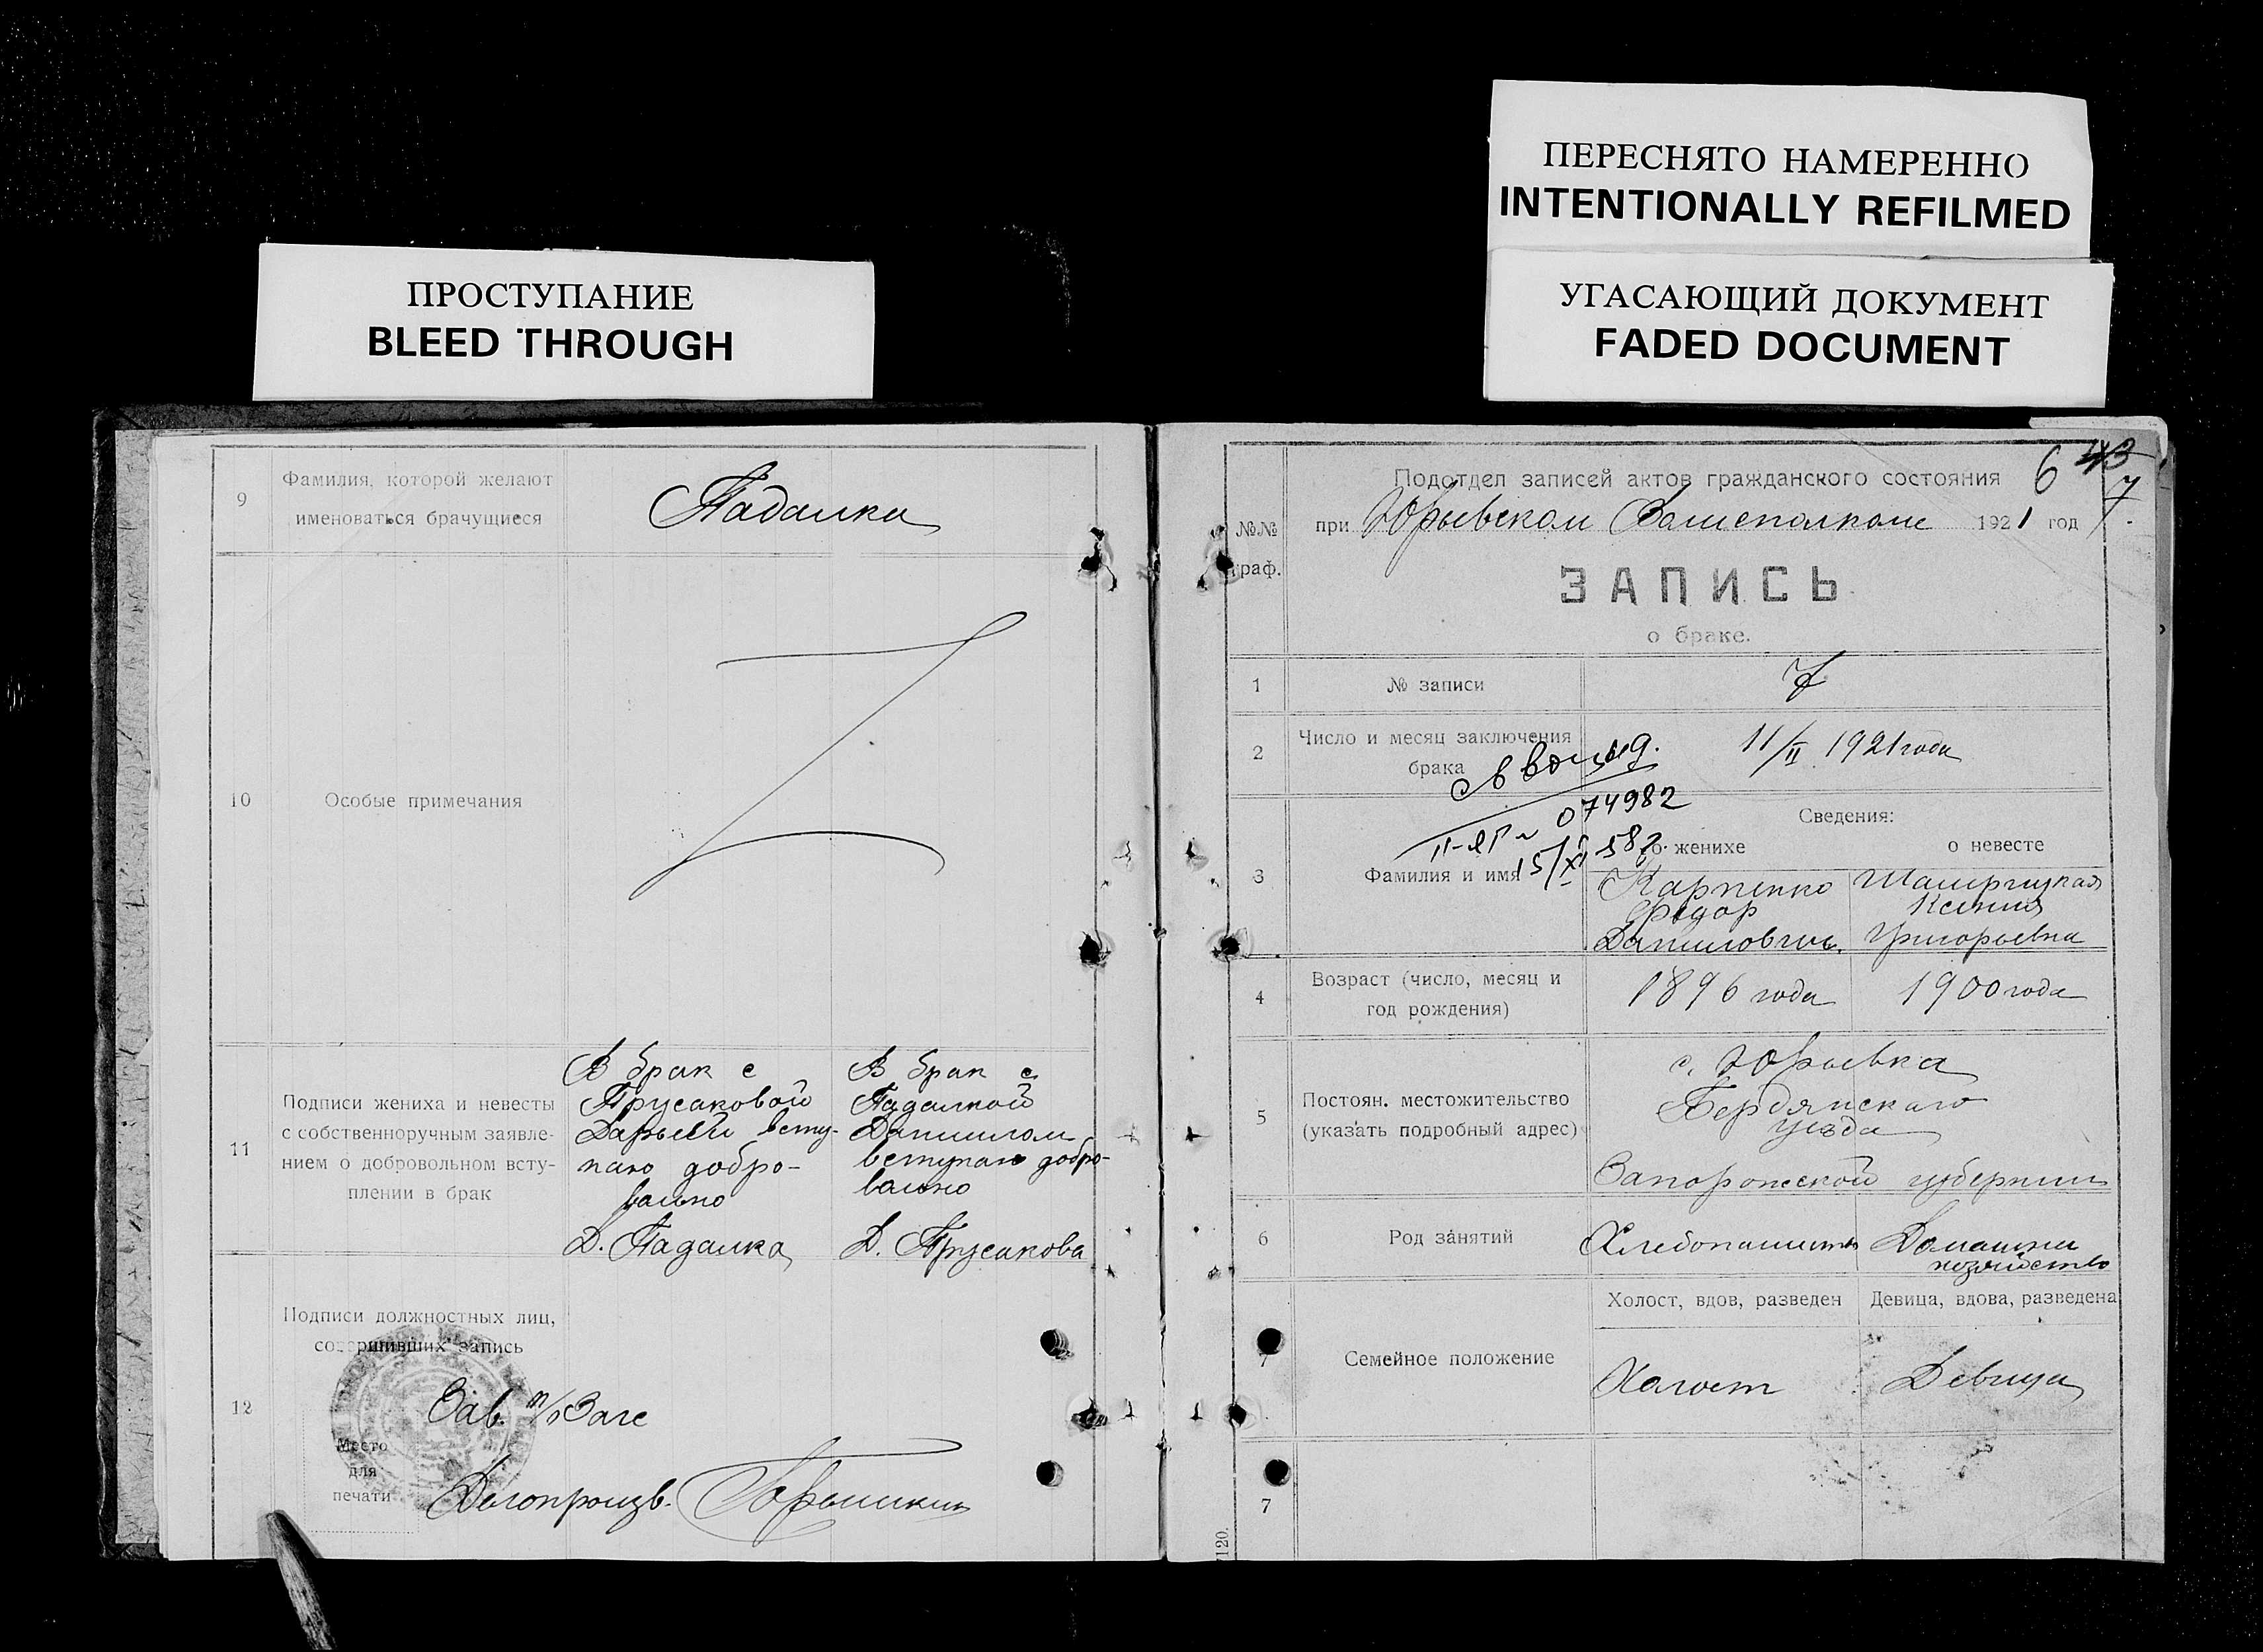 ПЕРЕСНЯТО НАМЕРЕННО
INTENTIONALLY REFILMED
УГАСАЮЩИЙ ДОКУМЕНТ
FADED DOCUMENT
ПРОСТУПАНИЕ
BLEED THROUGH
9
Фамилия, которой желают
именоваться брачущиеся
Падалка
10
Особые примечания
11
Подписи жениха и невесты
с собственноручным заявле-
нием о добровольном всту-
плении в брак
В брак с
Прусаковой
Дарьей всту-
паю добро-
вольно
Д. Падалка
В брак с
Падалкой
Даниилом
вступаю добро-
вольно
Д. Прусакова
12
Подписи должностных лиц,
совершивших запись
Зав. п/о Загс
Место
для
печати
Делопроизв.
6 43
7
№№
граф.
Подотдел записей актов гражданского состояния
при Юрьевском Волисполкоме 1921 год
ЗАПИСЬ
о браке.
1
№ записи
7
2
Число и месяц заключения
брака
11/II 1921 года
074982
II-ЯР
15/XI 58г.
3
Фамилия и имя
Сведения:
о женихе
о невесте
Карпенко
Федор
Даниилович
Ксения
Григорьевна
4
Возраст (число, месяц и
год рождения)
1896 года
1900 года
5
Постоян. местожительство
(указать подробный адрес)
с. Юрьевка
Бердянскаго
уезда
Запорожской губернии
6
Род занятий
Хлебопашит
Домашни
хозяйство
7
Семейное положение
Холост, вдов, разведен
Девица, вдова, разведена
Холост
Девица
7
7120.